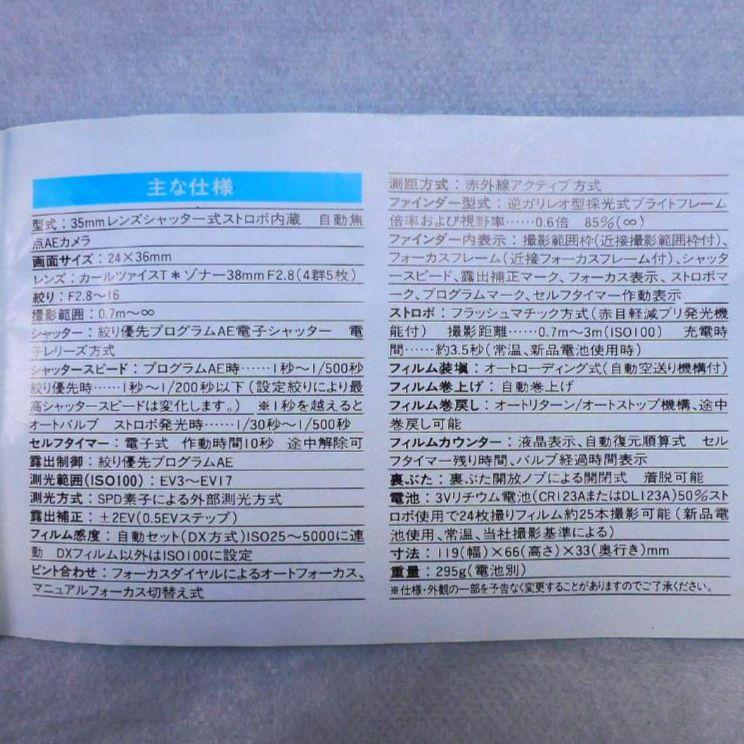 主な仕様
型式：35mmレンズシャッター式ストロボ内蔵　自動焦
点AEカメラ
画面サイズ：24×36mm
レンズ：カールツァイスT＊ゾナー38mm F2.8(4群5枚)
絞り：F2.8〜16
撮影範囲：0.7m〜∞
シャッター：絞り優先プログラムAE電子シャッター　電
子レリーズ方式
シャッタースピード：プログラムAE時……1秒〜1/500秒
絞り優先時……1秒〜1/200秒以下(設定絞りにより最
高シャッタースピードは変化します。)　※1秒を越えると
オートバルブ　ストロボ発光時……1/30秒〜1/500秒
セルフタイマー：電子式　作動時間10秒　途中解除可
露出制御：絞り優先プログラムAE
測光範囲(ISO100)：EV3〜EV17
測光方式：SPD素子による外部測光方式
露出補正：±2EV(0.5EVステップ)
フィルム感度：自動セット(DX方式)ISO25〜5000に連
動　DXフィルム以外はISO100に設定
ピント合わせ：フォーカスダイヤルによるオートフォーカス、
マニュアルフォーカス切替え式
測距方式：赤外線アクティブ方式
ファインダー型式：逆ガリレオ型採光式ブライトフレーム
倍率および視野率……0.6倍　85%(∞)
ファインダー内表示：撮影範囲枠(近接撮影範囲枠付)、
フォーカスフレーム(近接フォーカスフレーム付)、シャッタ
ースピード、露出補正マーク、フォーカス表示、ストロボマ
ーク、プログラムマーク、セルフタイマー作動表示
ストロボ：フラッシュマチック方式(赤目軽減プリ発光機
能付)　撮影距離……0.7m〜3m(ISO100)　充電時
間……約3.5秒(常温、新品電池使用時)
フィルム装塡：オートローディング式(自動空送り機構付)
フィルム巻上げ：自動巻上げ
フィルム巻戻し：オートリターン/オートストップ機構、途中
巻戻し可能
フィルムカウンター：液晶表示、自動復元順算式　セル
フタイマー残り時間、バルブ経過時間表示
裏ぶた：裏ぶた開放ノブによる開閉式　着脱可能
電池：3Vリチウム電池(CR123AまたはDL123A)50%スト
ロボ使用で24枚撮りフィルム約25本撮影可能(新品電
池使用、常温、当社撮影基準による)
寸法：119(幅)×66(高さ)×33(奥行き)mm
重量：295g(電池別)
※仕様・外観の一部を予告なく変更することがありますのでご了承ください。